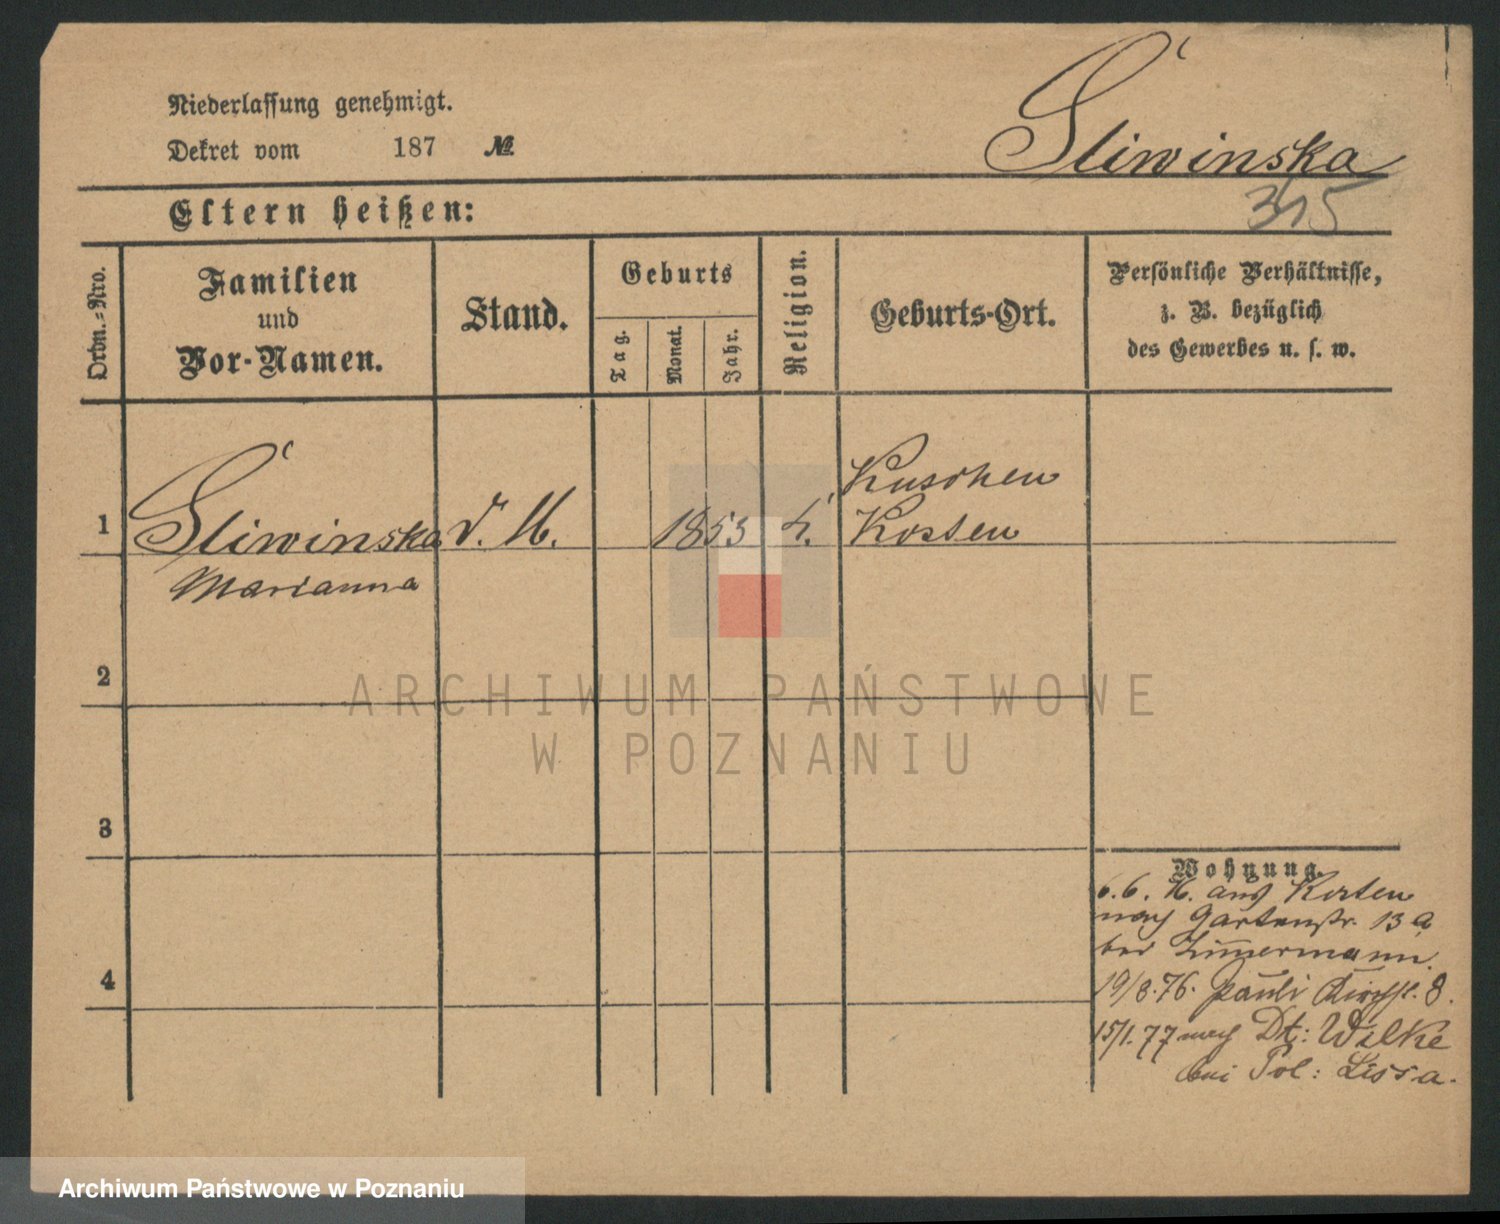 Śliwinska
Niederlassung genehmigt.
Dekret vom 187 №
315
Eltern heißen:
Ordn.=Nro.
Familien
und
Vor-Namen.
Stand.
Geburts
Tag.
Monat.
Jahr.
Religion.
Geburts-Ort.
Persönliche Verhältnisse,
z. B. bezüglich
des Gewerbes u. s. w.
1
Śliwinska
Marianna
d. M.
1853
k.
Kuschen
Kosten
2
ARCHIWUM PAŃSTWOWE
W POZNANIU
3
4
Wohnung.
6.6. 76. aus Kosten
nach Gartenstr. 13 a
bei Zimmermann.
19/8.76. Pauli Kirchst. 8.
15/1.77 nach Dt: Wilke
bei Pol: Lissa.
Archiwum Państwowe w Poznaniu